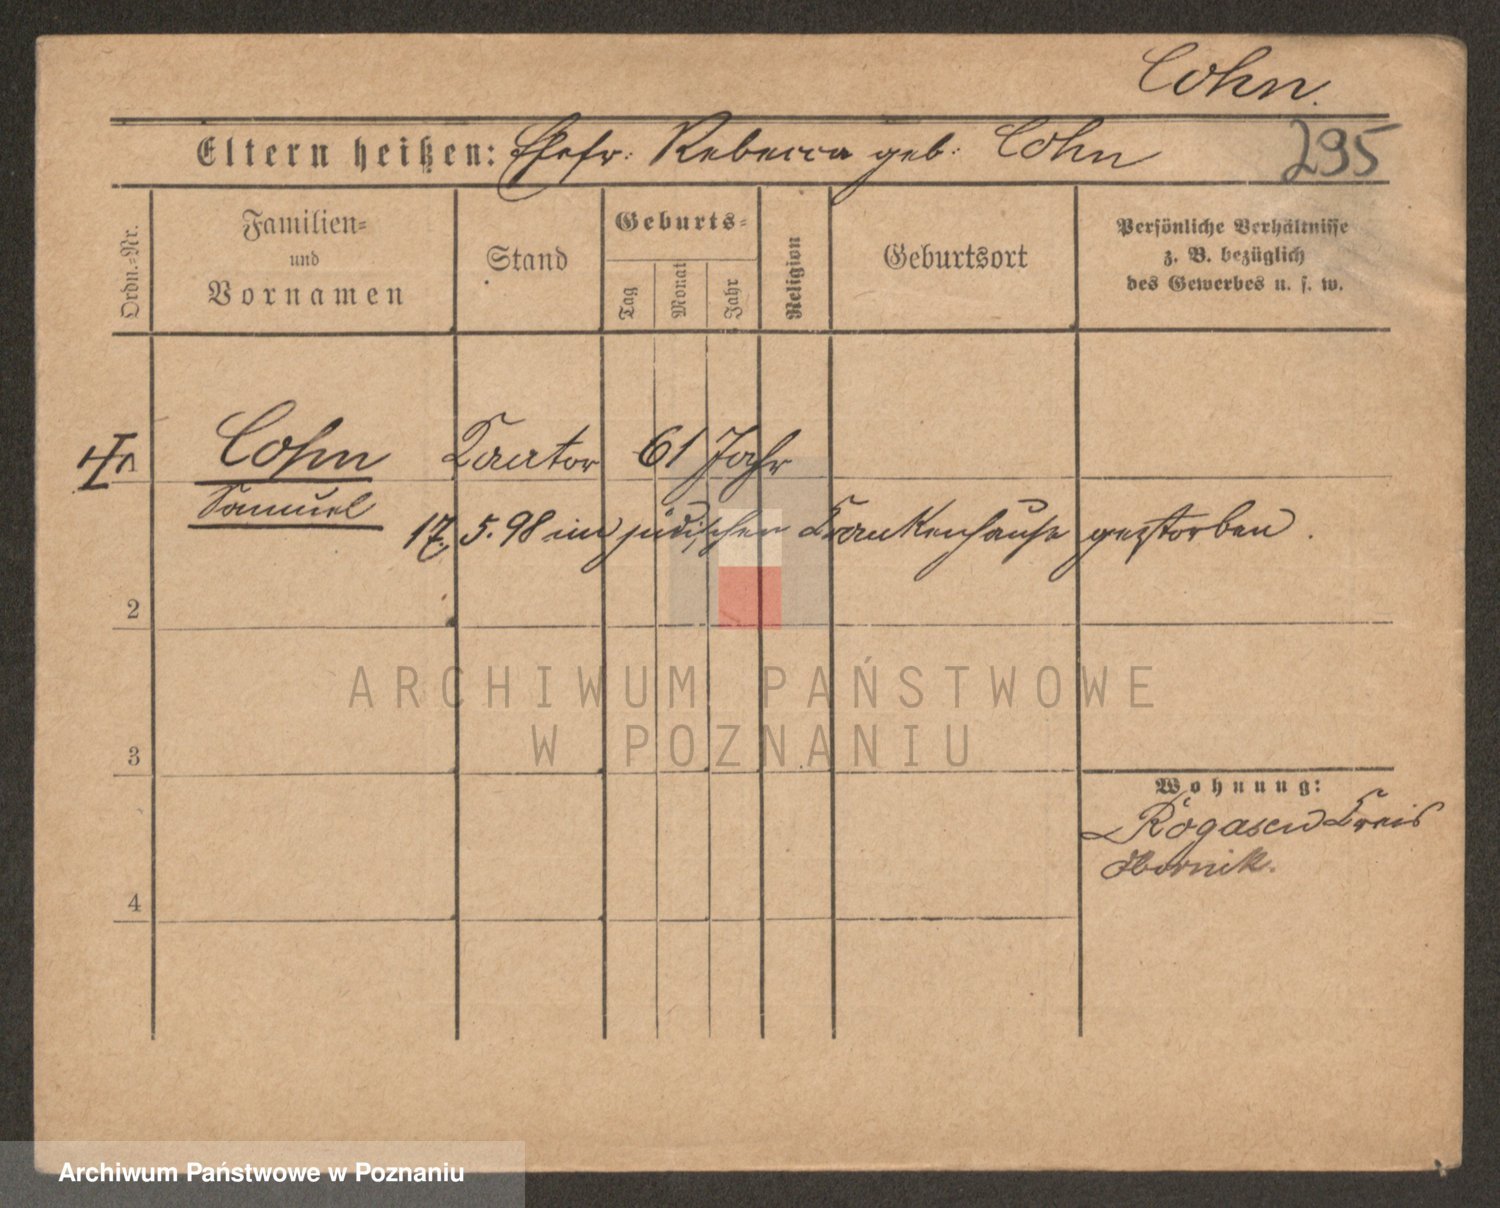 Cohn.
Eltern heißen: Ehefr. Rebecca geb. Cohn 295
Ordn.-Nr.
Familien- und Vornamen
Stand
Geburts-
Tag
Monat
Jahr
Religion
Geburtsort
Persönliche Verhältnisse
z. B. bezüglich
des Gewerbes u. s. w.
1 Cohn Kantor 61 Jahr
Samuel
17. 5. 98 im jüdischen Krankenhause gestorben.
2
ARCHIWUM PAŃSTWOWE
W POZNANIU
3
Wohnung:
Rogasen Kreis
Obornik.
4
Archiwum Państwowe w Poznaniu